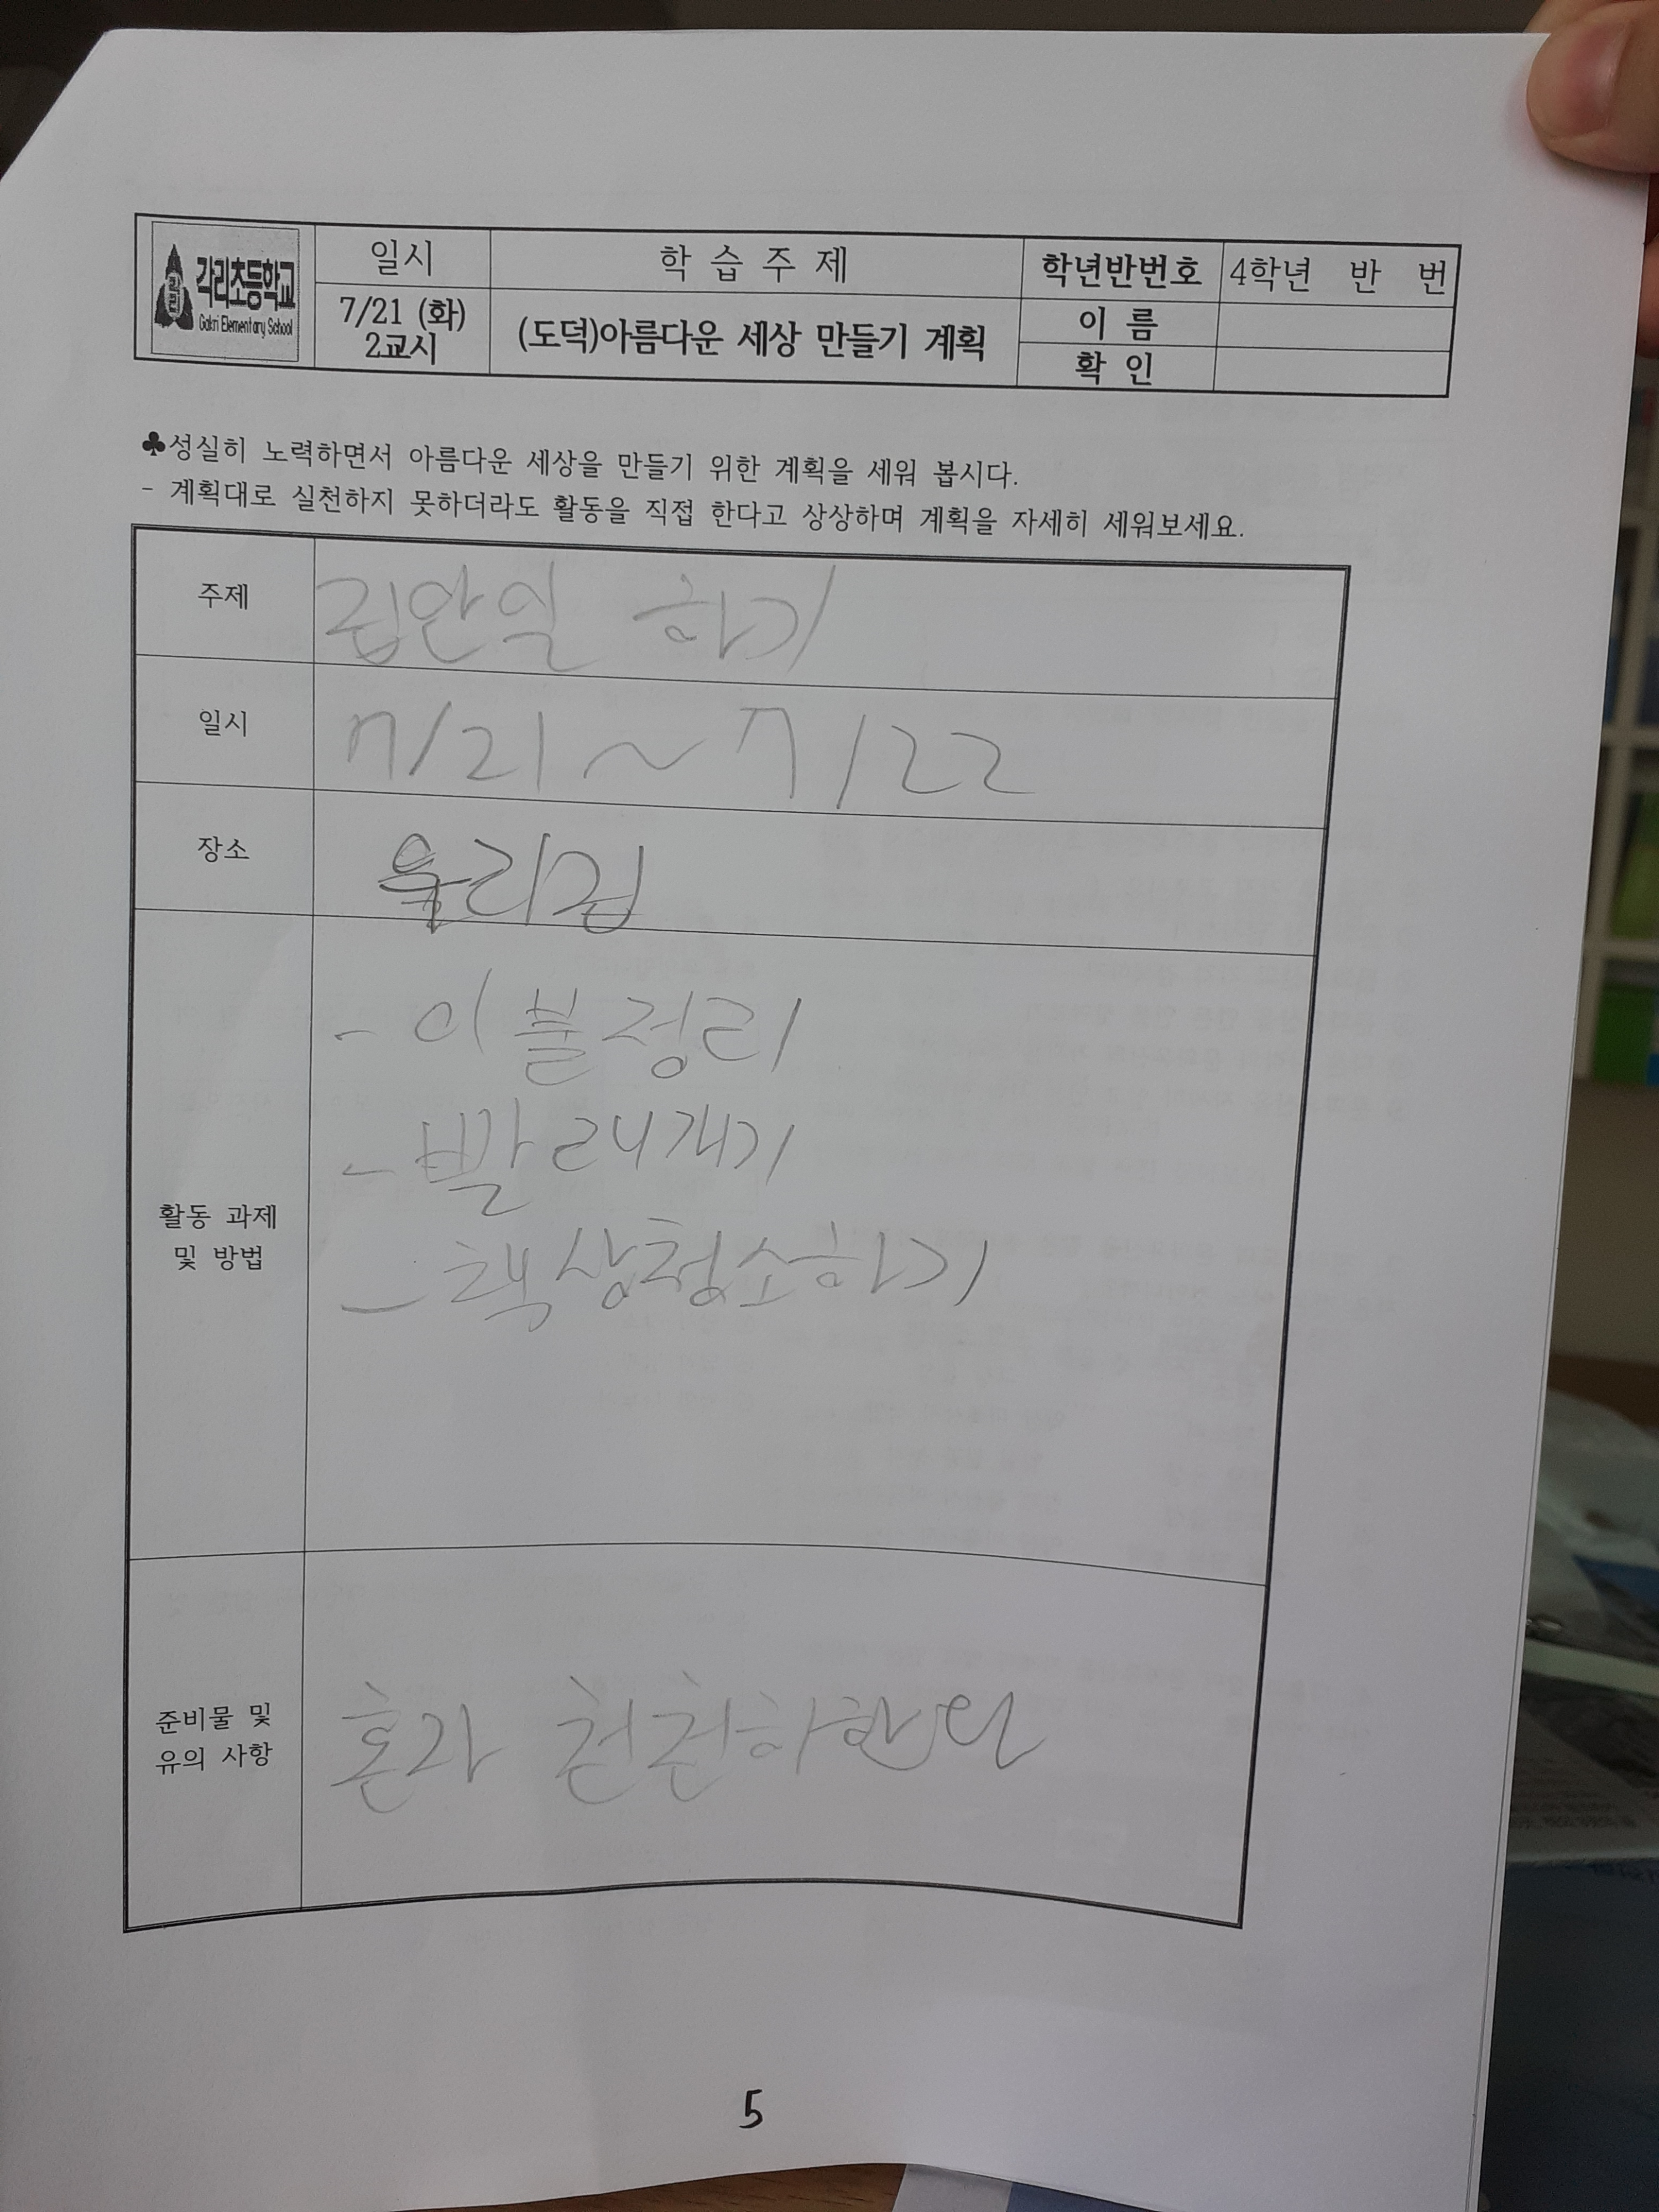 각리
각리초등학교
Gakri Elementary School
일시
학 습 주 제
학년반번호
4학년 반 번
7/21 (화)
2교시
(도덕)아름다운 세상 만들기 계획
이 름
확 인
♣성실히 노력하면서 아름다운 세상을 만들기 위한 계획을 세워 봅시다.
- 계획대로 실천하지 못하더라도 활동을 직접 한다고 상상하며 계획을 자세히 세워보세요.
주제
집안일 하기
일시
7/21 ~ 7/22
장소
우리집
활동 과제
및 방법
- 이불정리
- 빨래개기
- 책상청소하기
준비물 및
유의 사항
혼자 천천하한다
5